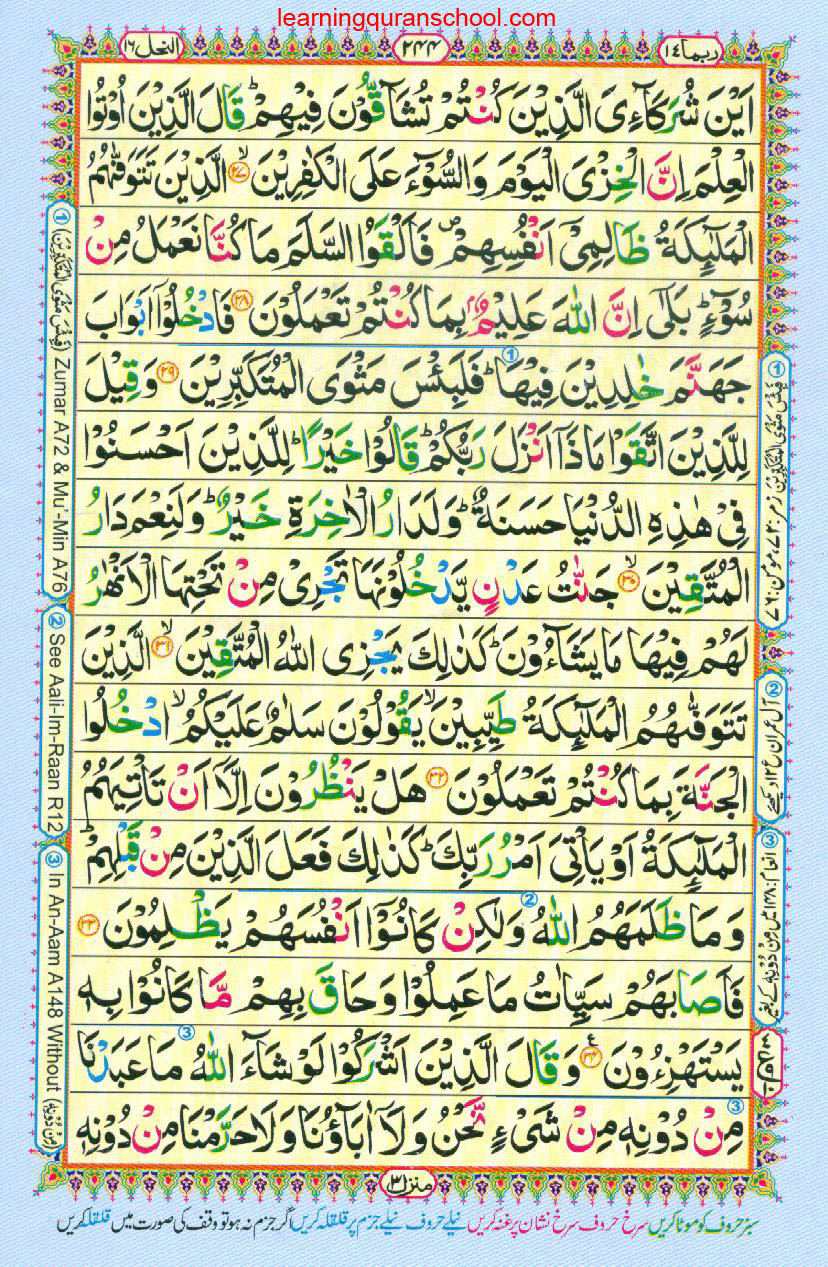 learningquranschool.com
ربما ١٤
٢٤٤
النحل ١٦
اَيْنَ شُرَكَآءِىَ الَّذِيْنَ كُنْتُمْ تُشَآقُّوْنَ فِيْهِمْ ؕ قَالَ الَّذِيْنَ اُوْتُوا
الْعِلْمَ اِنَّ الْخِزْىَ الْيَوْمَ وَالسُّوْٓءَ عَلَى الْكٰفِرِيْنَ ۙ‏ ﴿۲۷﴾ الَّذِيْنَ تَتَوَفّٰىهُمُ
الْمَلٰٓٮِٕكَةُ ظَالِمِىْۤ اَنْفُسِهِمْ ۖ فَاَلْقَوُا السَّلَمَ مَا كُنَّا نَعْمَلُ مِنْ
سُوْٓءٍ ؕ بَلٰٓى اِنَّ اللّٰهَ عَلِيْمٌۢ بِمَا كُنْتُمْ تَعْمَلُوْنَ ﴿۲۸﴾ فَادْخُلُوْۤا اَبْوَابَ
جَهَنَّمَ خٰلِدِيْنَ فِيْهَا ؕ ① فَلَبِئْسَ مَثْوَى الْمُتَكَبِّرِيْنَ ﴿۲۹﴾ وَقِيْلَ
لِلَّذِيْنَ اتَّقَوْا مَاذَاۤ اَنْزَلَ رَبُّكُمْ ؕ قَالُوْا خَيْرًا ؕ لِلَّذِيْنَ اَحْسَنُوْا
فِىْ هٰذِهِ الدُّنْيَا حَسَنَةٌ ؕ وَلَدَارُ الْاٰخِرَةِ خَيْرٌ ؕ وَلَنِعْمَ دَارُ
الْمُتَّقِيْنَ ۙ ﴿۳۰﴾ جَنّٰتُ عَدْنٍ يَّدْخُلُوْنَهَا تَجْرِىْ مِنْ تَحْتِهَا الْاَنْهٰرُ
لَهُمْ فِيْهَا مَا يَشَآءُوْنَ ؕ كَذٰلِكَ يَجْزِى اللّٰهُ الْمُتَّقِيْنَ ۙ ﴿۳۱﴾ الَّذِيْنَ
تَتَوَفّٰٮهُمُ الْمَلٰٓٮِٕكَةُ طَيِّبِيْنَ ۙ يَقُوْلُوْنَ سَلٰمٌ عَلَيْكُمُ ۙ ادْخُلُوا
الْجَنَّةَ بِمَا كُنْتُمْ تَعْمَلُوْنَ ﴿۳۲﴾ هَلْ يَنْظُرُوْنَ اِلَّاۤ اَنْ تَاْتِيَهُمُ
الْمَلٰٓٮِٕكَةُ اَوْ يَاْتِىَ اَمْرُ رَبِّكَ ؕ كَذٰلِكَ فَعَلَ الَّذِيْنَ مِنْ قَبْلِهِمْ ؕ
وَمَا ظَلَمَهُمُ اللّٰهُ ② وَلٰكِنْ كَانُوْۤا اَنْفُسَهُمْ يَظْلِمُوْنَ ﴿۳۳﴾
فَاَصَابَهُمْ سَيِّاٰتُ مَا عَمِلُوْا وَحَاقَ بِهِمْ مَّا كَانُوْا بِهٖ
يَسْتَهْزِءُوْنَ ﴿۳۴﴾ ③ وَقَالَ الَّذِيْنَ اَشْرَكُوْا لَوْ شَآءَ اللّٰهُ مَا عَبَدْنَا
مِنْ دُوْنِهٖ مِنْ شَىْءٍ نَّحْنُ وَلَاۤ اٰبَآؤُنَا وَلَا حَرَّمْنَا مِنْ دُوْنِهٖ ③
① (فَبِئْسَ مَثْوَى الْمُتَكَبِّرِيْنَ) Zumar A72 & Mu'-Min A76
② See Aali-Im-Raan R12
③ In An-Aam A148 Without (مِنْ دُوْنِهٖ)
① فَبِئْسَ مَثْوَى الْمُتَكَبِّرِيْنَ زمر: ٧٢، مومن: ٧٦
② آل عمران ع ١٢ دیکھئے
③ انعام: ١٤٨ میں مِنْ دُوْنِهٖ کے بغیر
منزل ٣
سبز حروف کو موٹا کریں سرخ حروف سرخ نشان پر غنہ کریں نیلے حروف نیلے جزم پر قلقلہ کریں اگر جزم نہ ہو تو وقف کی صورت میں قلقلہ کریں